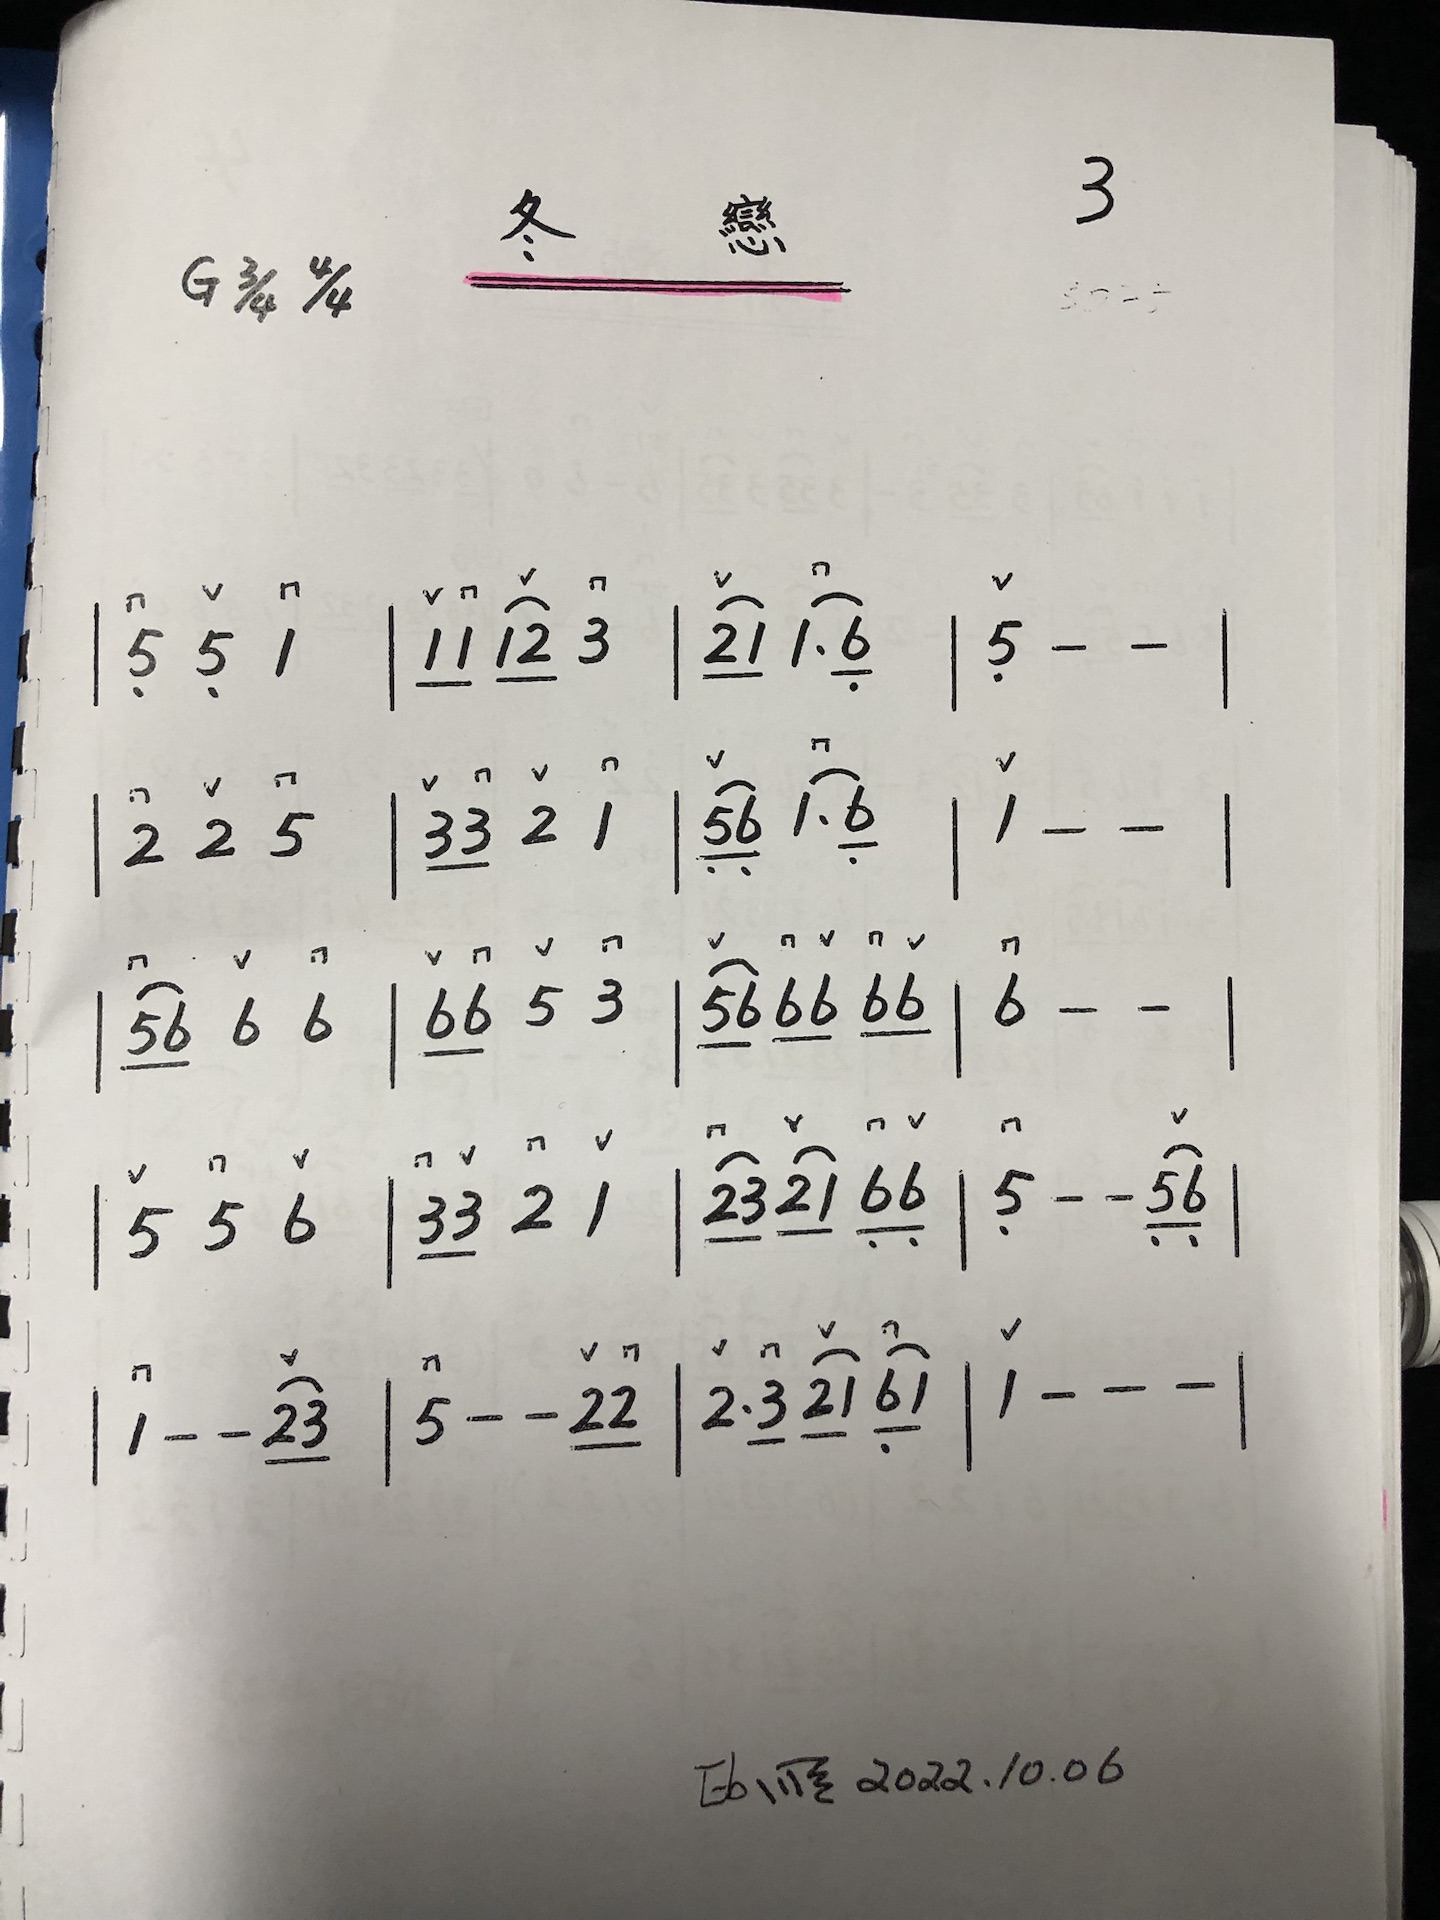 冬 戀
3
G 3/4 4/4
| 5̣ 5̣ 1 | 11 12 3 | 21 1·6̣ | 5̣ - - |
| 2 2 5 | 33 2 1 | 5̣6̣ 1·6̣ | 1 - - |
| 56 6 6 | 66 5 3 | 56 66 66 | 6 - - |
| 5 5 6 | 33 2 1 | 23 21 6̣6̣ | 5̣ - - 5̣6̣ |
| 1 - - 23 | 5 - - 22 | 2·3 21 6̣1 | 1 - - - |
2022.10.06